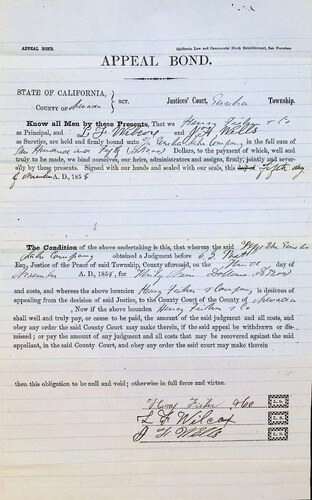 APPEAL BOND.
California Law and Commercial Blank Establishment, San Francisco
APPEAL BOND.
STATE OF CALIFORNIA,
COUNTY OF Nevada } SCT. Justices' Court, Eureka Township.
Know all Men by these Presents, That we Henry Fisher & Co
as Principal, and L. F. Wilcox and J H Wells
as Sureties, are held and firmly bound unto The Eureka Lake Company in the full sum of
One Hundred and Fifty Dollars, to the payment of which, well and
truly to be made, we bind ourselves, our heirs, administrators and assigns, firmly, jointly and sever-
ally by these presents. Signed with our hands and sealed with our seals, this fifth day
of November A. D., 185
The Condition of the above undertaking is this, that whereas the said The Eureka
Lake Company obtained a Judgment before
Esq., Justice of the Peace of said Township, County aforesaid, on the Third day of
November A. D., 185 , for Thirty Dollars
and costs, and whereas the above bounden Henry Fisher & Company is desirous of
appealing from the decision of said Justice, to the County Court of the County of Nevada
, Now if the above bounden Henry Fisher & Co
shall well and truly pay, or cause to be paid, the amount of the said judgment and all costs, and
obey any order the said County Court may make therein, if the said appeal be withdrawn or dis-
missed; or pay the amount of any judgment and all costs that may be recovered against the said
appellant, in the said County Court, and obey any order the said court may make therein
then this obligation to be null and void; otherwise in full force and virtue.
Henry Fisher & Co
L F Wilcox
J H Wells